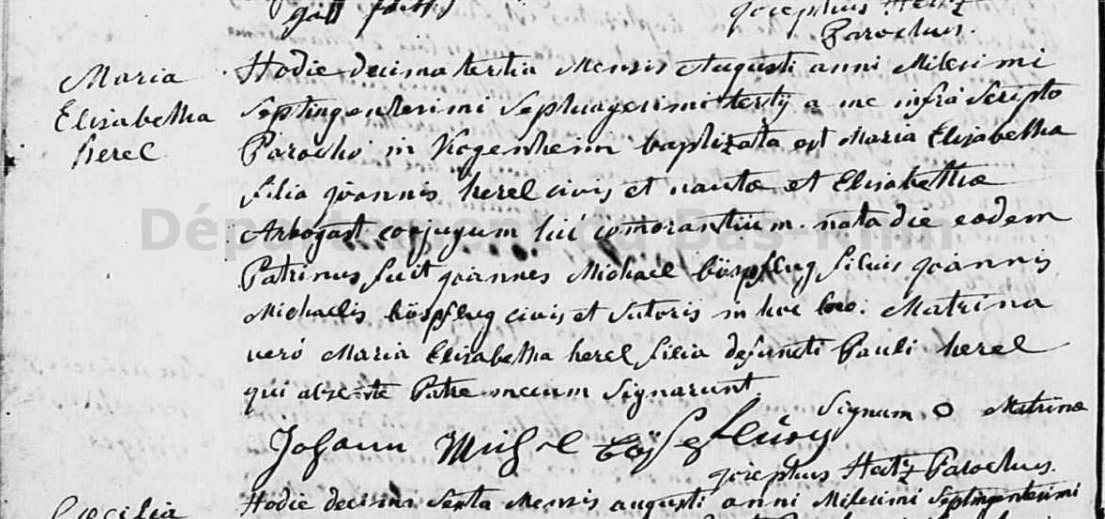 josephus Heitz
Parochus.
Maria
Elisabetha
herel
Hodie decima tertia Mensis Augusti anni Milesimi
Septingentesimi Septuagesimi tertij a me infra Scripto
Parocho in Kogenheim baptizata est Maria Elisabetha
filia joannis herel civis et nautæ et Elisabethæ
Arbogast conjugum hic comorantium. nata die eodem
Patrinus fuit joannes Michael böspflug filius joannis
Michaelis böspflug civis et Sutoris in hoc loco. Matrina
verò Maria Elisabetha herel filia defuncti Pauli herel
qui absente Patre mecum Signarunt
Signum O Matrinæ
Johann Michel
josephus Heitz Parochus.
Cæcilia
Hodie decima Sexta Mensis augusti anni Milesimi Septingentesimi
Département du Bas-Rhin